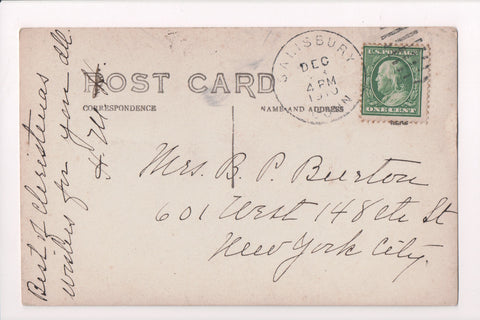 Best of Christmas
wishes for you all
H. M. H.
POST CARD
CORRESPONDENCE
NAME AND ADDRESS
SALISBURY
DEC
4 PM
1910
CONN
U.S. POSTAGE
ONE CENT
Mrs. B. P. Burton
601 West 148th St
New York City.